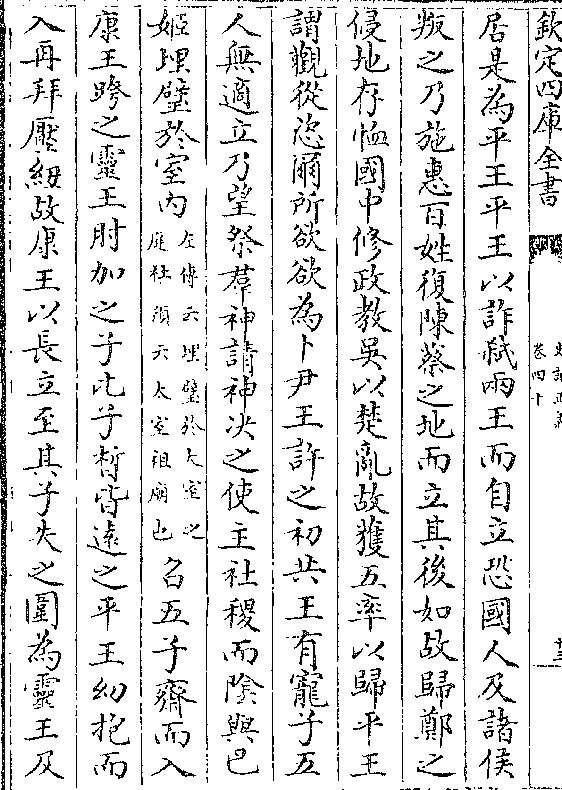 欽定四庫全書
史記正義
卷四十
十三
居是為平王平王以詐弑兩王而自立恐國人及諸侯
叛之乃施惠百姓復陳蔡之地而立其後如故歸鄭之
侵地存恤國中修政教吳以楚亂故獲五率以歸平王
謂觀從恣爾所欲欲為卜尹王許之初共王有寵子五
人無適立乃望祭羣神請神决之使主社稷而陰與巴
姬埋璧於室内左傳云埋璧於大室之庭杜預云大室祖廟也召五子齋而入
康王跨之靈王肘加之子比子晳皆逺之平王幼抱而
入再拜壓紐故康王以長立至其子失之圍為靈王及